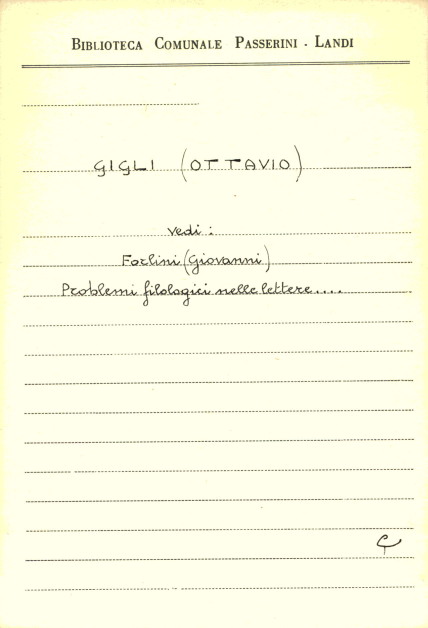 BIBLIOTECA COMUNALE PASSERINI - LANDI
GIGLI (OTTAVIO)
Vedi :
Forlini (Giovanni)
Problemi filologici nelle lettere....